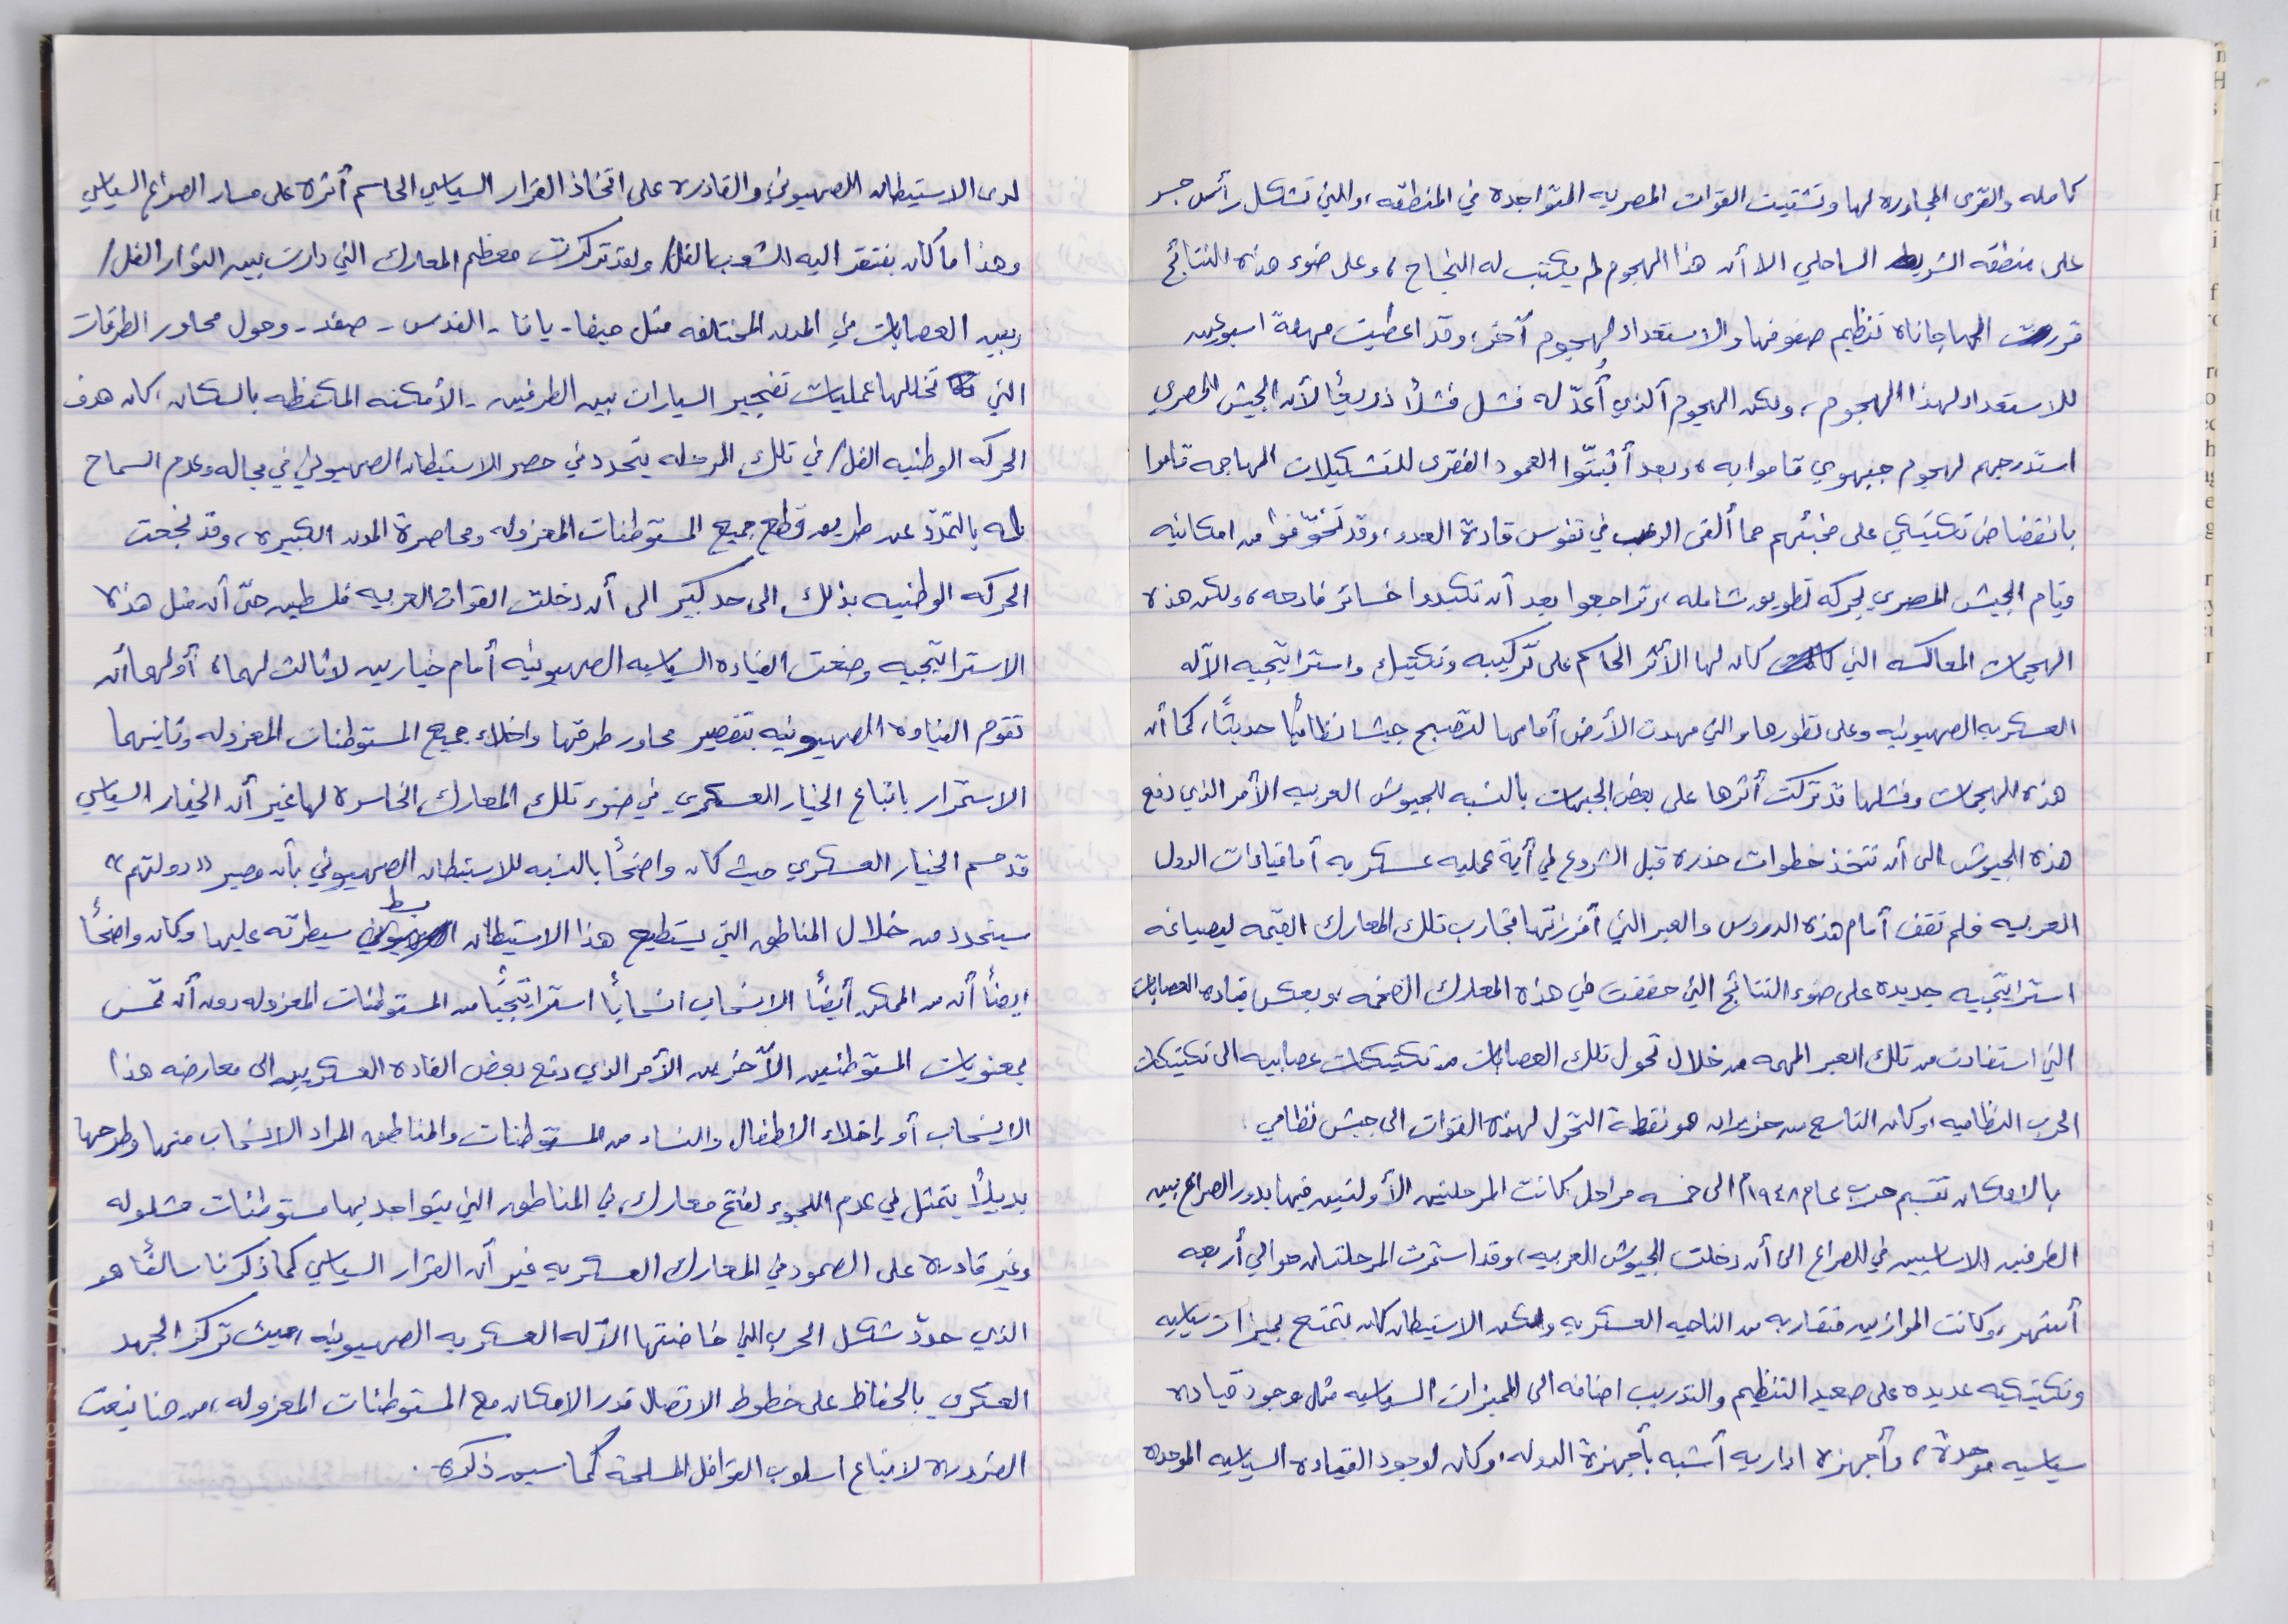 كامله والقرى المجاوره لها وتشتيت القوات المصريه المتواجدة في المنطقه، والتي تشكل رأس جسر
على منطقه الشريط الساحلي الا أن هذا الهجوم لم يكتب له النجاح، وعلى ضوء هذه النتائج
قررت الهاجاناه تنظيم صفوفها والاستعداد لهجوم آخر، وقد اعطيت مهلة اسبوعين
للاستعداد لهذا الهجوم، ولكن الهجوم الذي أُعدّ له فشل فشلاً ذريعاً لأن الجيش المصري
استدرجهم لهجوم جبهوي قاموا به، وبعد أن ثبتّوا العمود الفقرى للتشكيلات المهاجمه قاموا
بانقضاض تكتيكي على مخبئهم مما ألقى الرعب في نفوس قادة العدو، وقد تخوّفوا من امكانيه
قيام الجيش المصري بحركه تطويق شامله، وتراجعوا بعد أن تكبدوا خسائر فادحه، ولكن هذه
الهجمات المعاكسه التي كان لها الأثر الحاكم على تركيبه وتكتيك واستراتيجيه الآله
العسكريه الصهيونيه وعلى تطورها والتي مهدت الأرض أمامها لتصبح جيشا نظامياً حديثاً، كما أن
هذه الهجمات وفشلها قد تركت أثرها على بعض الجبهات بالنسبه للجيوش العربيه الأمر الذي دفع
هذه الجيوش الى أن تتخذ خطوات حذره قبل الشروع في أية عمليه عسكريه أما قيادات الدول
العربيه فلم تقف أمام هذه الدروس والعبر التي أفرزتها تجارب تلك المعارك القيّمه ليصياغه
استراتيجيه جديده على ضوء النتائج التي حققت في هذه المعارك الضخمه، وبعكس قياده العصابات
التي استفادت من تلك العبر المهمه من خلال تحول تلك العصابات من تكتيكات عصابيه الى تكتيكات
الحرب النظاميه، وكان التاسع من حزيران هو نقطة التحول لهذه القوات الى جيش نظامي.
بالامكان تقسيم حرب عام ١٩٤٨م الى خمسه مراحل كانت المرحلتين الأولتين فيها يدور الصراع بين
الطرفين الاساسيين في الصراع الى أن دخلت الجيوش العربيه، وقد استمرت المرحلتان حوالي أربعه
أشهر، وكانت الموازين متقاربه من الناحيه العسكريه ولكن الاستيطان كان يتمتع بميزات سياسيه
وتكتيكيه عديده على صعيد التنظيم والتدريب اضافه الى المميزات السياسيه مثل وجود قياده
سياسيه موحدة، وأجهزه اداريه أشبه بأجهزة الدوله، وكان لوجود القياده السياسيه الموحده
لدى الاستيطان الصهيوني والقادره على اتخاذ القرار السياسي الحاسم أثره على مسار الصراع السياسي
وهذا ما كان يفتقر اليه الشعب الفل/ ولقد تركزت معظم المعارك التي دارت بين الثوار الفل/
وبين العصابات في المدن المختلفه مثل حيفا - يافا - القدس - صفد - وحول محاور الطرقات
التي تخللها عمليات تفجير السيارات بين الطرفين - الأمكنه المكتظه بالسكان، كان هدف
الحركه الوطنيه الفل/ في تلك المرحله يتحدد في حصر الاستيطان الصهيوني في مجاله وعدم السماح
له بالتمدّد عن طريق قطع جميع المستوطنات المعزوله ومحاصرة المدن الكبيره، وقد نجحت
الحركه الوطنيه بذلك الى حد كبير الى أن دخلت القوات العربيه فلسطين حتّى أن مثل هذه
الاستراتيجيه وضعت القياده السياسيه الصهيونيه أمام خيارين لا ثالث لهما، أولهما أن
تقوم القيادة الصهيونيه بتقصير محاور طرقها واخلاء جميع المستوطنات المعزوله وثانيهما
الاستمرار باتباع الخيار العسكري في ضوء تلك المعارك الخاسره لها غير أن الخيار السياسي
قد حسم الخيار العسكري حيث كان واضحاً بالنسبه للاستيطان الصهيوني بأن مصير «دولتهم»
سيتحدد من خلال المناطق التي يستطيع هذا الاستيطان بسط سيطرته عليها وكان واضحاً
ايضاً أن من الممكن أيضاً الانسحاب انسحاباً استراتيجياً من المستوطنات المعزوله دون أن تمس
بمعنويات المستوطنين الآخرين الأمر الذي دفع بعض القاده العسكريين الى معارضه هذا
الانسحاب أو إخلاء الاطفال والنساء من المستوطنات والمناطق المراد الانسحاب منها وطرحها
بديلاً يتمثل في عدم اللجوء لفتح معارك في المناطق التي يتواجد بها مستوطنات مشلوله
وغير قادره على الصمود في المعارك العسكريه غير أن القرار السياسي كما ذكرنا سالفاً هو
الذي حدّد شكل الحرب التي خاضتها الآله العسكريه الصهيونيه، حيث تركز الجهد
العسكري بالحفاظ على خطوط الاتصال قدر الامكان مع المستوطنات المعزوله، من هنا نبعت
الضروره لاتباع اسلوب القوافل المسلحة كما سبق ذكره.